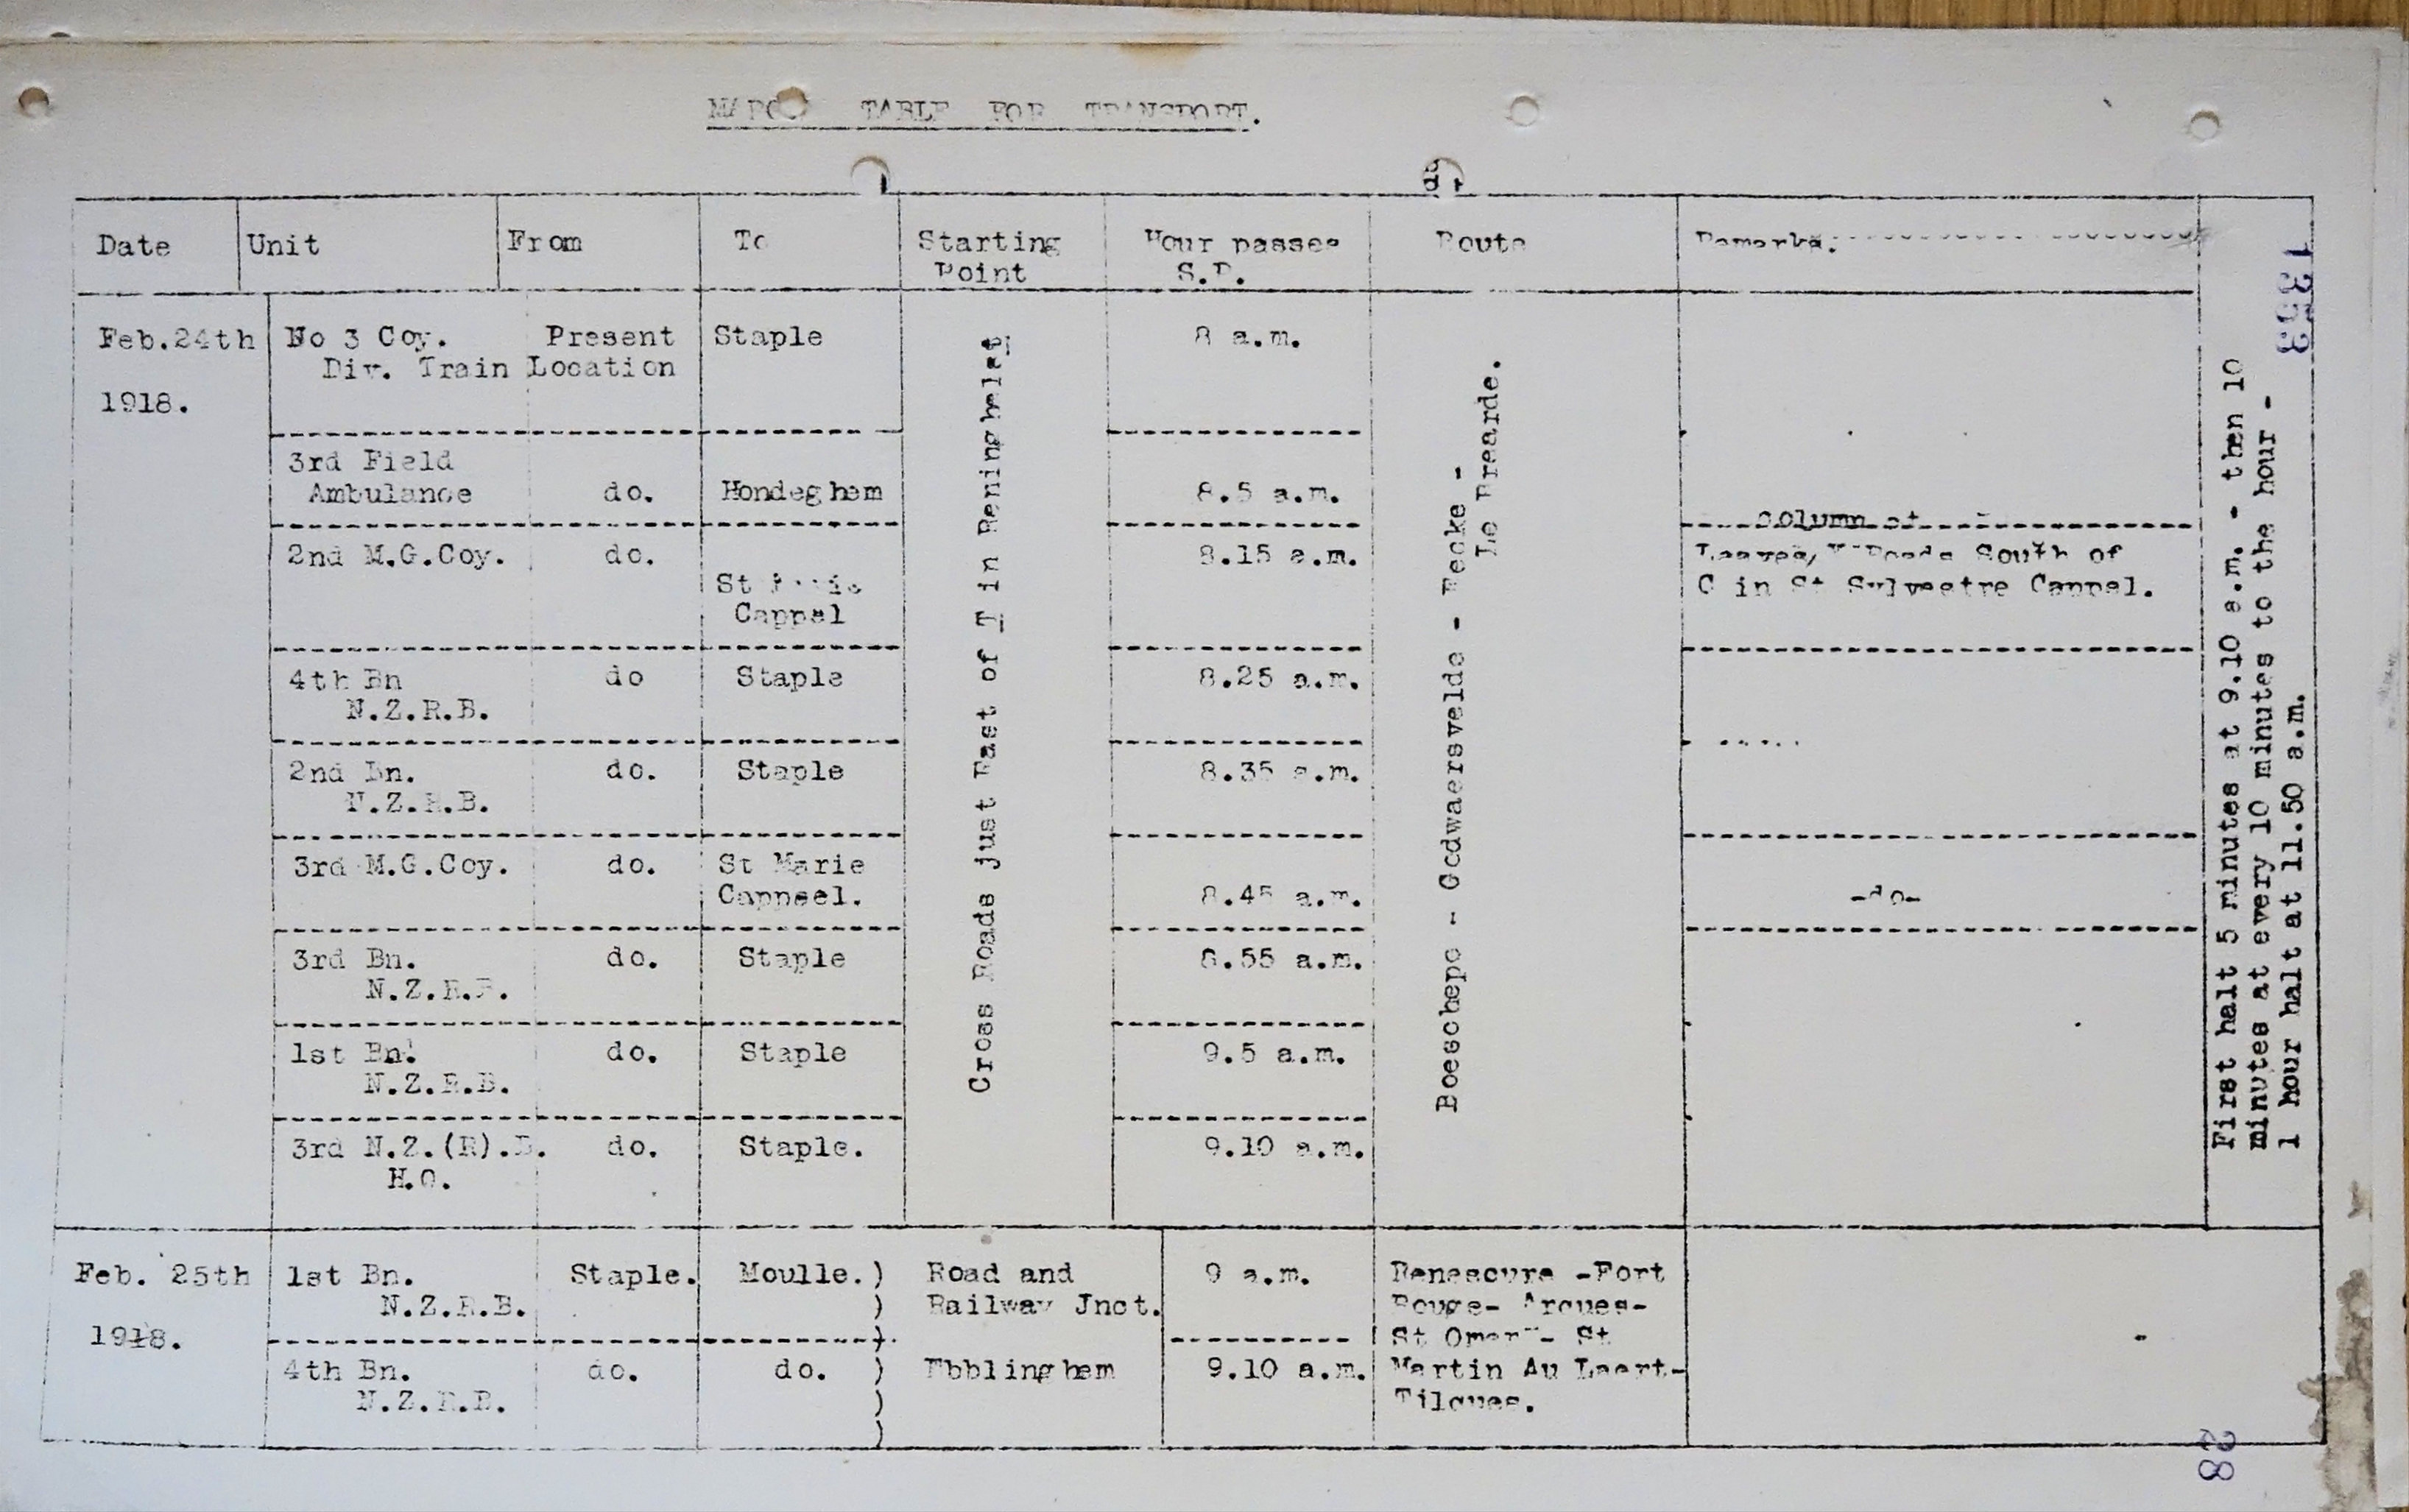 MARCH TABLE FOR TRANSPORT.
Date Unit From To Starting Point Hour passes S.P. Route Remarks.
Feb.24th 1918.
No 3 Coy. Present Staple 8 a.m.
Div. Train Location
3rd Field
Ambulance do. Hondeghem 8.5 a.m.
2nd M.G.Coy. do. 8.15 a.m.
St
Cappel
column at
Leaves, Roads South of
C in St Sylvestre Cappel.
4th Bn do Staple 8.25 a.m.
N.Z.R.B.
2nd Bn. do. Staple 8.35 a.m.
N.Z.R.B.
3rd M.G.Coy. do. St Marie
Cappeel. 8.45 a.m. -do-
3rd Bn. do. Staple 8.55 a.m.
N.Z.R.B.
1st Bn. do. Staple 9.5 a.m.
N.Z.R.B.
3rd N.Z.(R).B. do. Staple. 9.10 a.m.
H.Q.
Cross Roads just East of T in Reninghelst
Boeschepe - Godwaersvelde - Eecke -
Le Brearde.
First halt 5 minutes at 9.10 a.m. - then 10
minutes at every 10 minutes to the hour -
1 hour halt at 11.50 a.m.
Feb. 25th 1st Bn. Staple. Moulle.) Road and 9 a.m. Renescure -Fort
N.Z.R.B. ) Railway Jnct. Rouge- Arques-
1918. ) St Omer - St
4th Bn. do. do. ) Ebblinghem 9.10 a.m. Martin Au Laert-
N.Z.R.B. ) Tilques.
)
1353
28